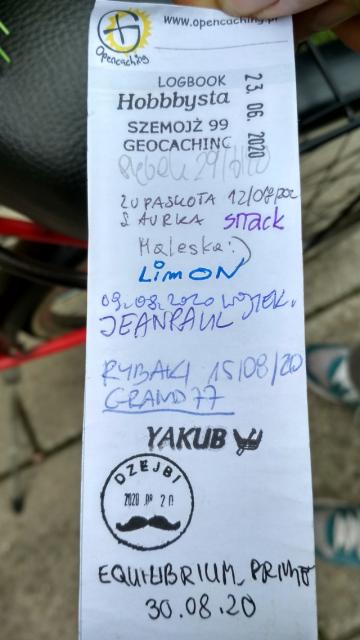 www.opencaching.pl
Opencaching
LOGBOOK
Hobbbysta
23.06.2020
SZEMOJŻ 99
GEOCACHING
ZUPASKOTA 12/07/202
SAURKA SMACK
Maleska:)
LiMON
09.08.2020 WOJTEK.
JEANPAUL
RYBAKI 15/08/20
GRAND 77
YAKUB
DZEJBI
2020 08 20
EQUILIBRIUM_PRIMO
30.08.20